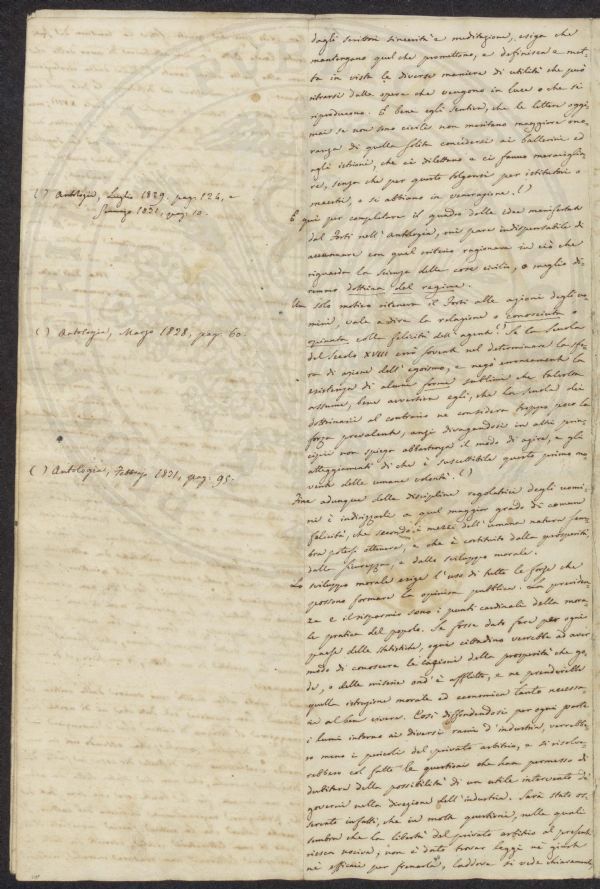 dagli scrittori sincerità e meditazione, esiga che
mantengano quel che promettono, e definisca e met-
ta in vista le diverse maniere di utilità che può
ritrarsi dalle opere che vengono in luce o che si
riproducono. E bene egli sentiva, che le lettere oggi-
mai se non sono civili non meritano maggiore ono-
ranza di quella solita concedersi ai ballerini ed
agli istrioni, che ci dilettano e ci fanno maraviglia-
re, senza che per questo tolgansi per istitutori o
maestri, e si abbiano in venerazione. ( )
( ) Antologia, Luglio 1829. pag. 124, e
Gennajo 1831, pag. 10.
E qui per completare il quadro delle idee manifestate
dal Forti nell'Antologia, mi pare indispensabile di
accennare con qual criterio ragionava in ciò che
riguarda la scienza delle cose civili, o meglio di-
remmo dottrina del regime.
Un solo motivo riteneva il Forti alle azioni degli uo-
mini, vale a dire la relazione o conosciuta o
opinata colla felicità dell'agente. Se la Scuola
del Secolo XVIII errò sovente nel determinare la sfe-
ra di azione dell'egoismo, e negò erroneamente la
esistenza di alcune forme sublimi che talvolta
assume, bene avvertiva egli, che la scuola dei
dottrinarii al contrario ne considera troppo poco la
forza prevalente, anzi divagandosi in altri prin-
cipii non spiega abbastanza il modo di agire, e gli
atteggiamenti di che è suscettibile questo primo mo-
vente delle umane volontà. ( )
( ) Antologia, Marzo 1828, pag. 60.
( ) Antologia, Febbrajo 1831, pag. 95.
Fine adunque delle discipline regolatrici degli uomi-
ni è indirizzarli a quel maggior grado di comune
felicità, che secondo i mezzi dell'umana natura sem-
bra potersi ottenere, e che è costituito dalla prosperità,
dalla sicurezza, e dallo sviluppo morale.
Lo sviluppo morale esige l'uso di tutte le forze che
possono formare la opinion pubblica. La previden-
za e il risparmio sono i punti cardinali della mora-
le pratica del popolo. Se fosse dato fare per ogni
paese delle statistiche, ogni cittadino verrebbe ad aver
modo di conoscere le cagioni della prosperità che go-
de, o delle miserie ond'è afflitto, e ne prenderebbe
quella istruzione morale ed economica tanto necessa-
ria al ben vivere. Così diffondendosi per ogni parte
i lumi intorno ai diversi rami d'industria, verrebbe-
ro meno i pericoli del privato arbitrio, e si risolve-
rebbero col fatto le questioni che han permesso di
dubitare della possibilità di un utile intervento dei
governi nella direzione dell'industria. Sarà stato os-
servato infatti, che in molte questioni, nelle quali
sembra che la libertà del privato arbitrio al presente
riesca nociva, non è dato trovar leggi nè giuste
nè efficaci per frenarla, laddove si vede chiaramente